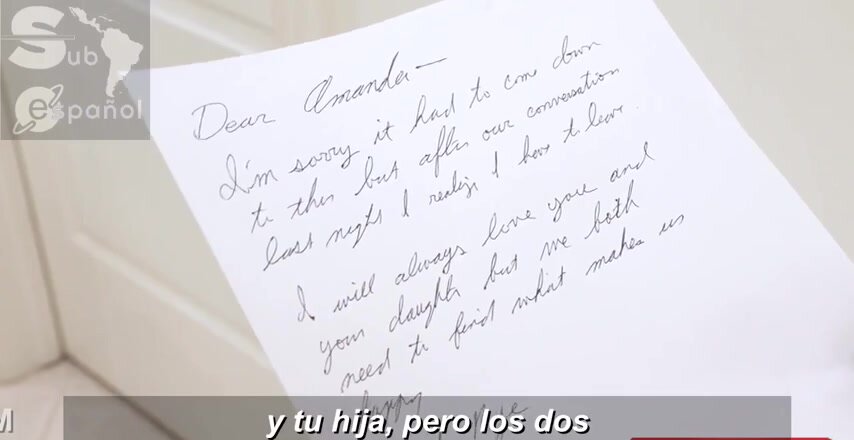 Sub
español
Dear Amanda—
I'm sorry it had to come down
to this but after our conversation
last night I realize I have to leave.
I will always love you and
your daughter but we both
need to find what makes us
happy
y tu hija, pero los dos
M